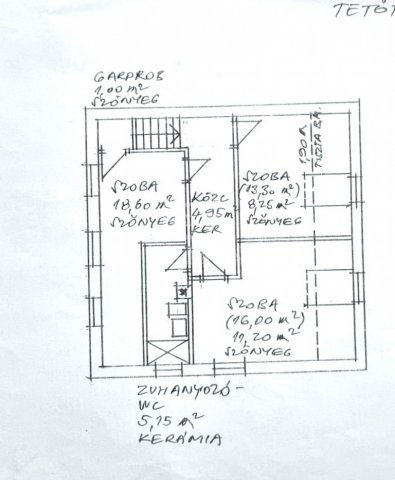 TETŐT
GARDROB
1,00 m²
SZŐNYEG
SZOBA
18,60 m²
SZŐNYEG
KÖZL
4,95 m
KER
SZOBA
(13,30 m²)
8,25 m²
SZŐNYEG
1,90 m
TISZTA BM.
SZOBA
(16,00 m²)
11,20 m²
SZŐNYEG
ZUHANYOZÓ-
WC
5,15 m²
KERÁMIA